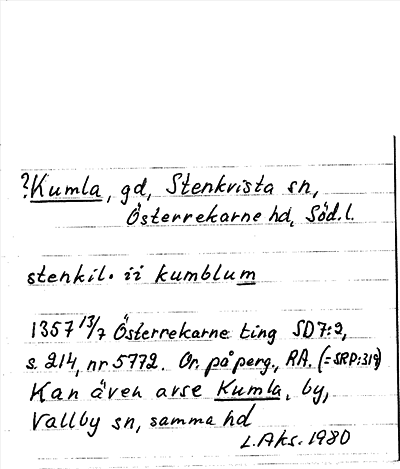 ?Kumla, gd, Stenkvista sn,
Österrekarne hd, Söd.l.
stenkil. ii kumblum
1357 13/7 Österrekarne ting SD7:2,
s. 214, nr 5772. Or. på perg., RA. (=SRP:319)
Kan även avse Kumla, by,
Vallby sn, samma hd
L.Aks. 1980